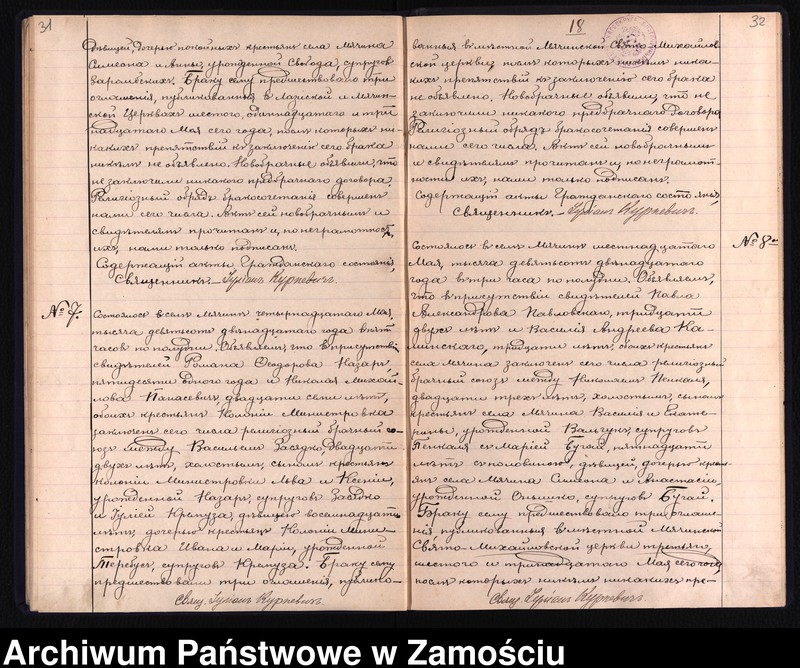 31
дѣвицей, дочерью покойныхъ крестьянъ села Мячина
Симеона и Анны, урожденной Свобода, супруговъ
Браку сему предшествовало три
оглашенія, публикованныя въ Мячин-
ской Церквахъ шестого, одиннадцатого и три-
надцатаго Мая сего года, послѣ которыхъ ни-
какихъ препятствій къ заключенію сего брака
никѣмъ не объявлено. Новобрачные объявили, что
не заключили никакого предбрачнаго договора.
Религіозный обрядъ бракосочетанія совершенъ
нами сего числа. Актъ сей новобрачнымъ и
свидѣтелямъ прочитанъ и, по неграмотности
ихъ, нами только подписанъ.
Содержащій акты Гражданскаго состоянія,
Священникъ Юліанъ Курпевичъ.
№ 7.
Состоялось въ селѣ Мячинѣ четырнадцатаго Мая,
тысяча девятьсотъ двѣнадцатаго года въ пять
часовъ по полудни. Объявляемъ, что въ присутствіи
свидѣтелей Романа Ѳеодорова Назаръ,
пятидесяти одного года и Николая Михай-
лова Панасевичъ двадцати семи лѣтъ,
обоихъ крестьянъ Колоніи Министровка
заключенъ сего числа религіозный брачный со-
юзъ между Василіемъ Засядко двадцати
двухъ лѣтъ, холостымъ, сыномъ крестьянъ
колоніи Министровки Льва и Ксеніи,
урожденной Назаръ, супруговъ Засядко
и Юліей Крепуза, дѣвицею восемнадцати
лѣтъ, дочерью крестьянъ Колоніи Мини-
стровка Ивана и Маріи, урожденной
Теребусъ, супруговъ Крепуза. Браку сему
предшествовали три оглашенія, публико-
Свящ. Юліанъ Курпевичъ.
18
32
ванныя въ мѣстной Мячинской Свято-Михайлов-
ской церкви, послѣ которыхъ никѣмъ ника-
кихъ препятствій къ заключенію сего брака
не объявлено. Новобрачные объявили, что не
заключили никакого предбрачнаго Договора
Религіозный обрядъ бракосочетанія совершенъ
нами сего числа. Актъ сей новобрачнымъ
и свидѣтелямъ прочитанъ и, по неграмот-
ности ихъ, нами только подписанъ.
Содержащій акты Гражданскаго состоянія,
Священникъ Юліанъ Курпевичъ.
№ 8
Состоялось въ селѣ Мячинѣ шестнадцатаго
Мая, тысяча девятьсотъ двѣнадцатаго
года въ три часа по полудни. Объявляемъ,
что въ присутствіи свидѣтелей Павла
Александрова Павловскаго, тридцати
двухъ лѣтъ и Василія Андреева Ка-
минскаго, тридцати лѣтъ, обоихъ крестьянъ
села Мячина заключенъ сего числа религіозный
брачный союзъ между Николаемъ Пенкаля,
двадцати трехъ лѣтъ, холостымъ, сыномъ
крестьянъ села Мячина Василія и Екате-
рины, урожденной Вальчукъ, супруговъ
Пенкаля съ Маріей Бугай, пятнадцати
лѣтъ съ половиною, дѣвицей, дочерью кресть-
янъ села Мячина Симеона и Анастасіи,
урожденной супруговъ Бугай.
Браку сему предшествовало три оглаше-
нія публикованныя въ мѣстной Мячинской
Свято-Михайловской церкви третьяго,
шестого и тринадцатаго Мая сего года
послѣ которыхъ никѣмъ никакихъ пре-
Свящ. Юліанъ Курпевичъ.
Archiwum Państwowe w Zamościu